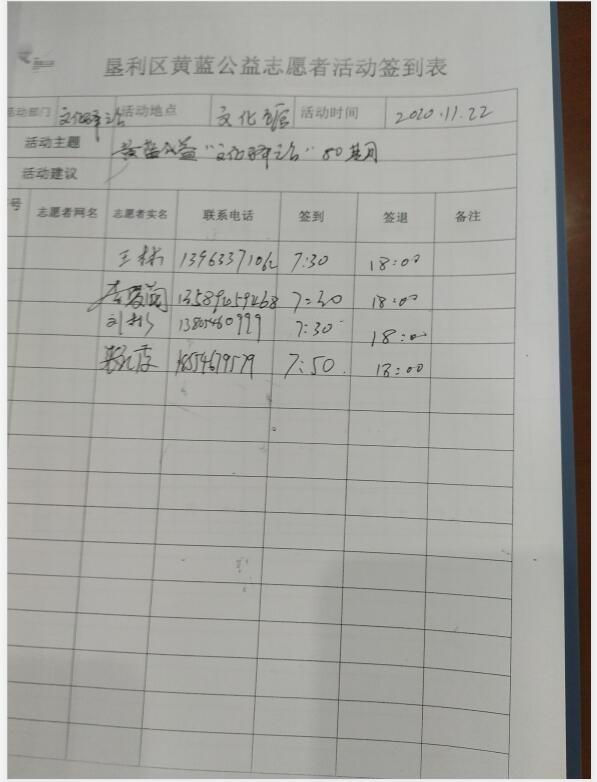 垦利区黄蓝公益志愿者活动签到表
活动部门 文化驿站 活动地点 文化 活动时间 2020.11.22
活动主题 黄蓝公益“文化驿站”80期
活动建议
号 志愿者网名 志愿者实名 联系电话 签到 签退 备注
王林 13963371062 7:30 18:00
13589059468 7:30 18:00
刘彬 13805460999 7:30 18:00
7:50 18:00